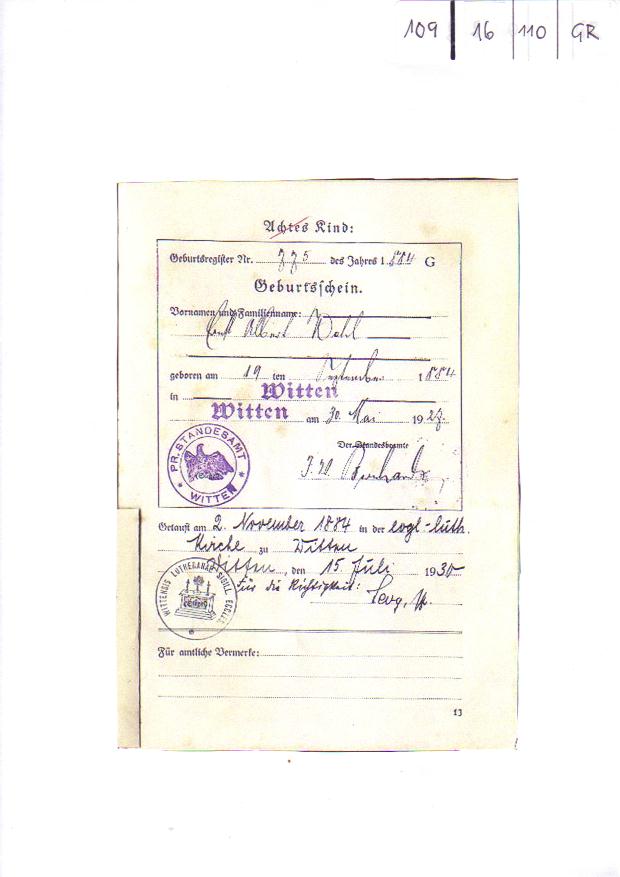 109 16 110 GR
Achtes Kind:
Geburtsregister Nr. 775 des Jahres 1884 G
Geburtsschein.
Vornamen und Familienname:
Ernst Albert Wahl
geboren am 19 ten September 1884
in Witten
Witten am 30. Mai 1927.
Der Standesbeamte
PR. STANDESAMT
WITTEN
J. V.
Getauft am 2. November 1884 in der evgl-luth.
Kirche zu Witten
Witten, den 15. Juli 1930
Für die Richtigkeit:
WITTENSIS LUTHERANAE SIGILL ECCLES
Für amtliche Vermerke:
13